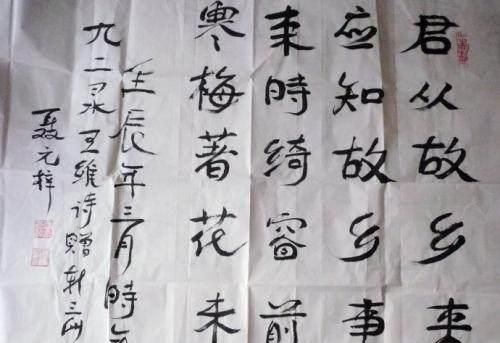 君从故乡来
应知故乡事
来時绮窗前
寒梅著花未
壬辰年三月時
九二录王维诗赠
聂元梓